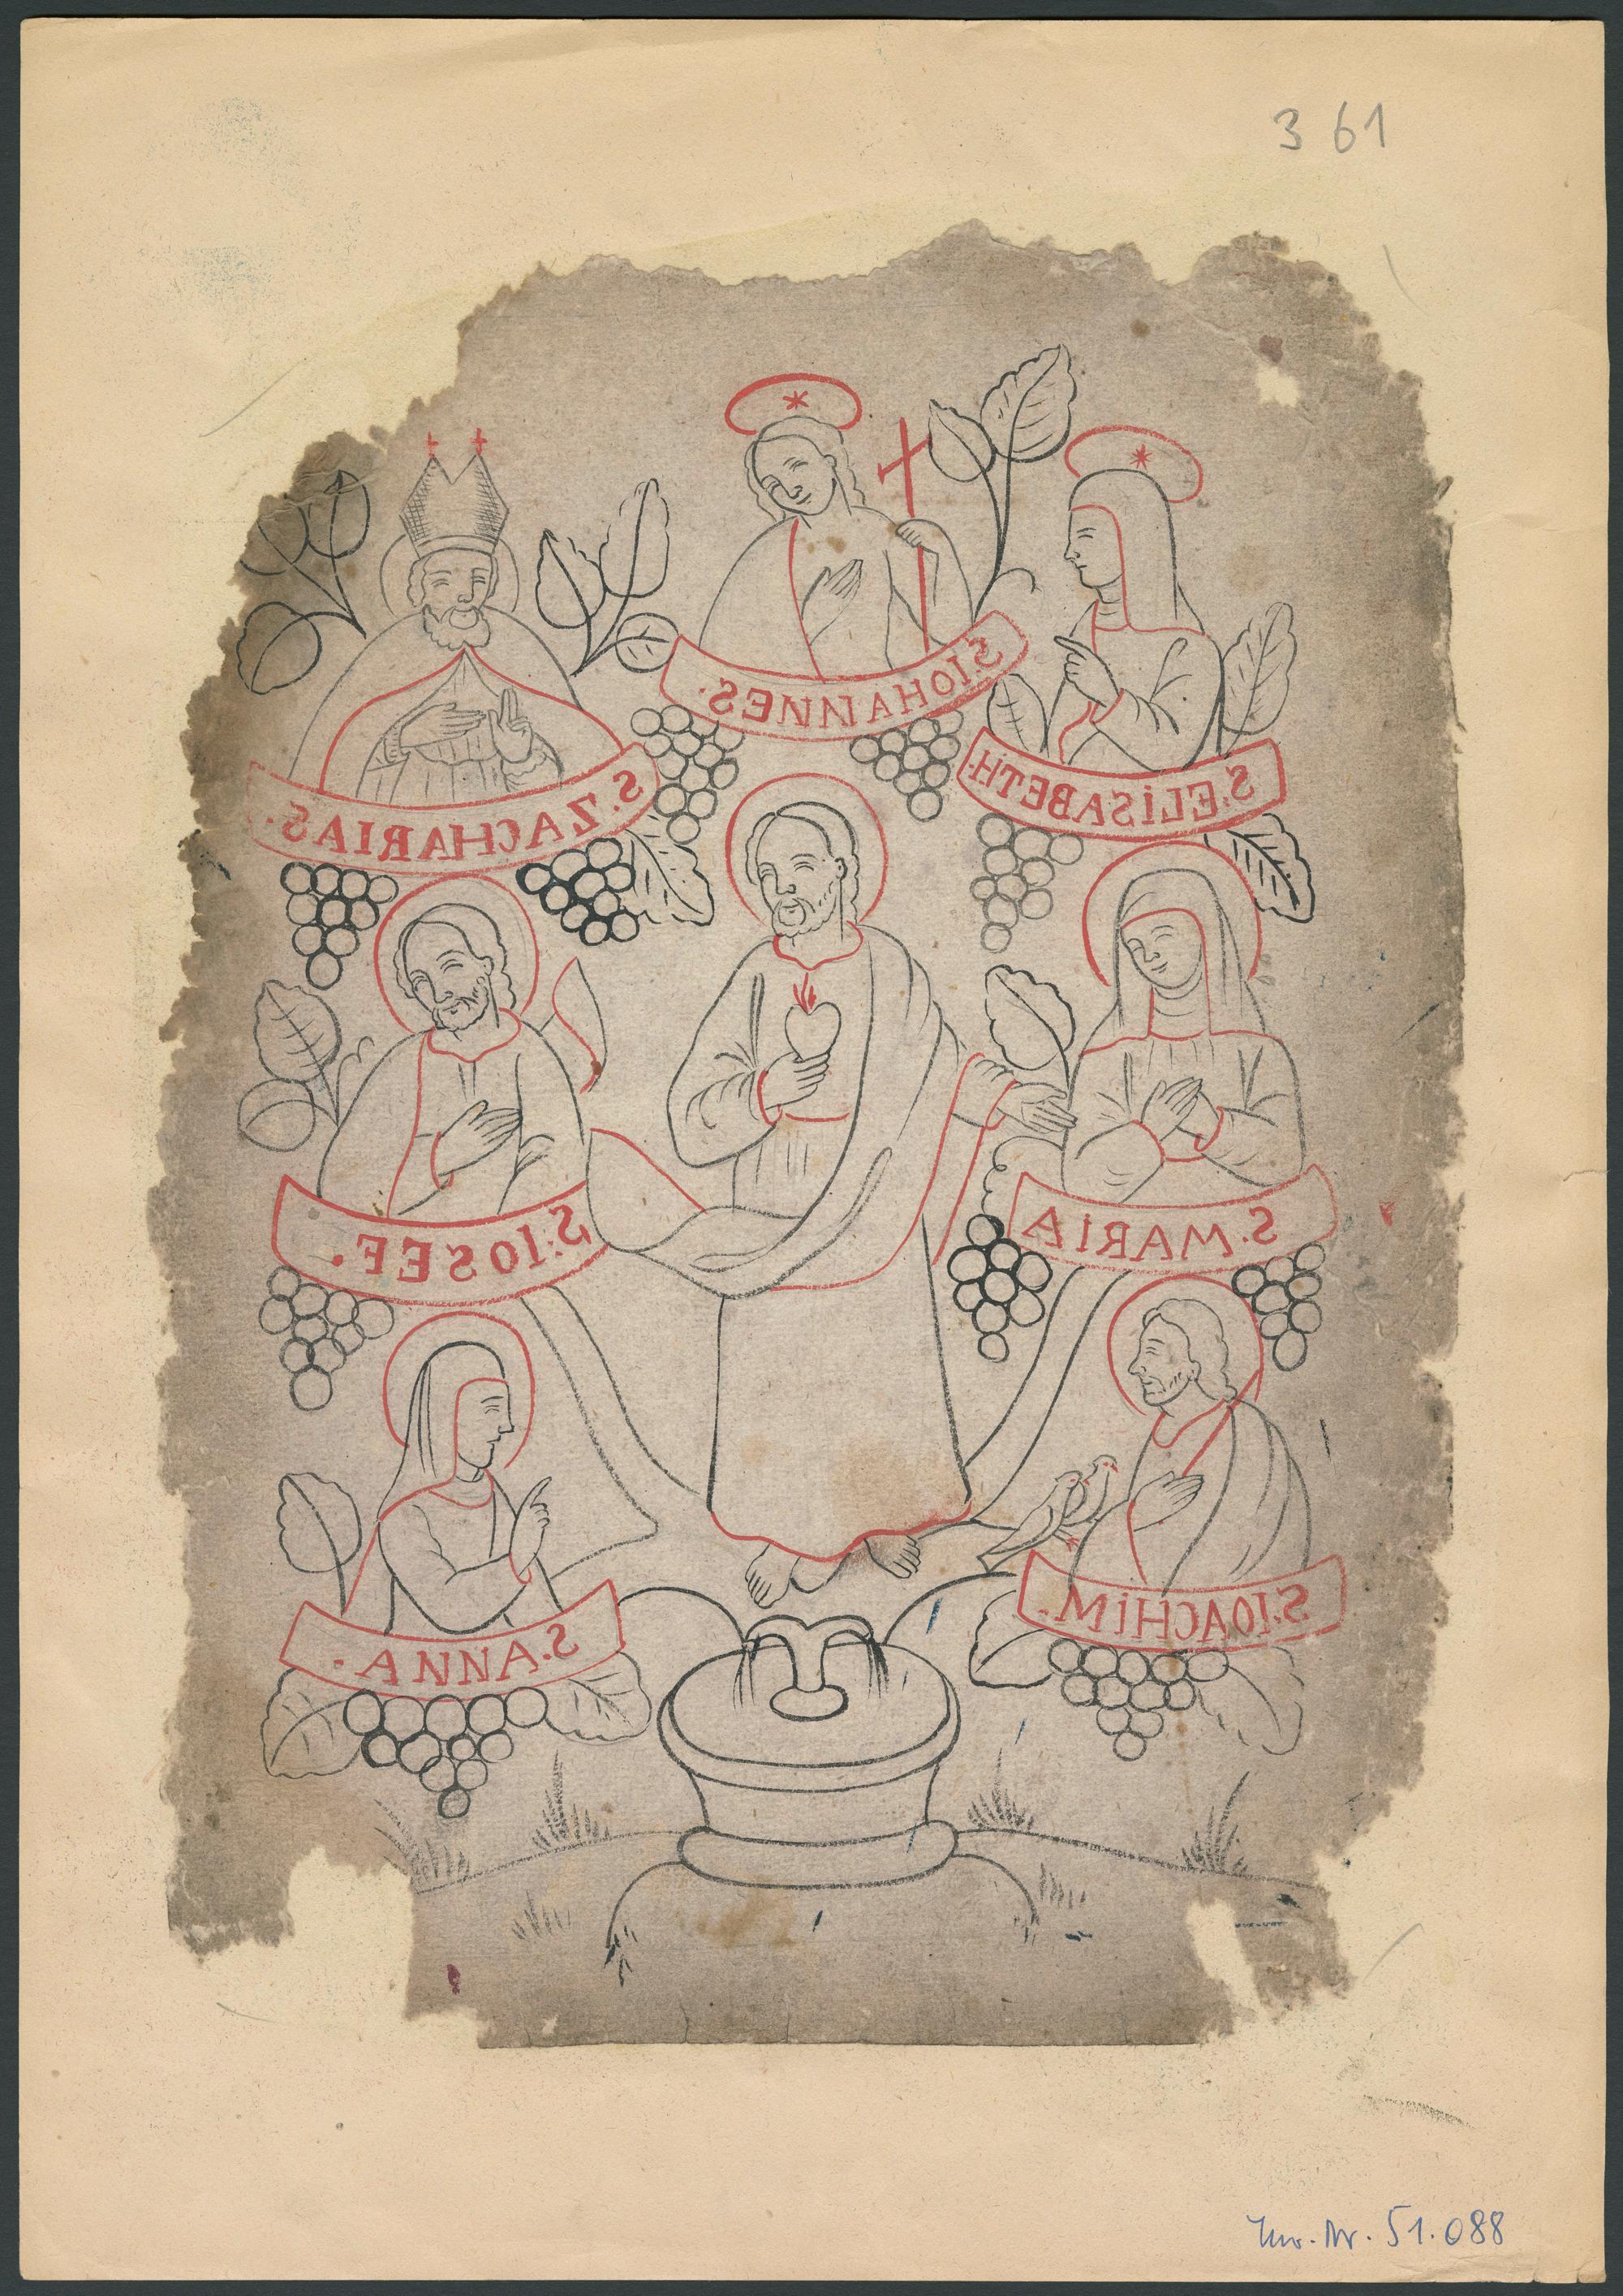 3 61
S. IOHANNES.
S. ZACHARIAS.
S. ELiSABETH.
S. IOSEF.
S. MARiA
S. ANNA.
S. IOACHiM.
Inv. Nr. 51.088